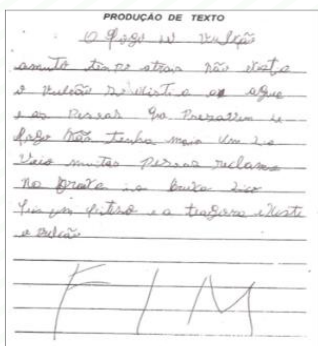 PRODUÇÃO DE TEXTO
O fogo e vulcão
amuto tenpo atrais não existo
o vulcão so existia a ague
e as Pessoas que Presavam
fogo não tenha mais um
Veio muitas pessoas reclama
na bruxa
fes um feitiso e a tragora existe
o vulcão
FIM